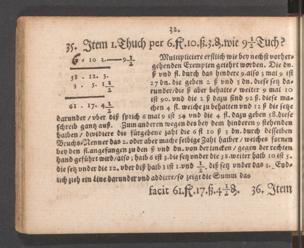 32.
35. Item 1. Thuch per 6. fl. 10. ß. 3. ₰. wie 9½ Tuch?
6 • 10 3.——9 ½
58 . 12. 3.
3 . 5. 1½
61 . 17. 4½
Multiplicire erstlich wie bey nehst vorher-
gehenden Exempeln gelehrt worden. Die dn.
ß und fl. durch das hindere 9. also 3 mal 9 ist
27 dn. die geben 2 ß und 3 dn. diese setz da-
runder / die ß aber behalte / weiter 9 mal 10
ist 90. und die 2 ß dazu sind 92 ß. diese ma-
chen 4 fl. welche zu behalten und 12 ß diese setz
darunder / über diß sprich 6 mal 9 ist 54 und die 4 fl. dazu geben 58. diese
schreib ganz auß. Zum anderen wegen des bey dem hinderen 9 stehenden
halben / dividire die fürgebene zahl die 6 fl 10 ß 3 dn. durch desselben
Bruchs-Nenner das 2. oder aber mache selbige zahl halber / welches
bey den fl. angefangen zu den ß und dn. von der lincken / gegen der rechten
hand geführt wird / also: halb 6 ist 3. die setz under die 58. weiter halb 10 ist 5.
die setz under die 12, über diß halb 3 ist 1 und ½. diß setz under das 3. End-
lich zieh ein line darunder und addiere / so zeigt die Summ das
facit 61. fl. 17. ß. 4½ ₰. 36. Item